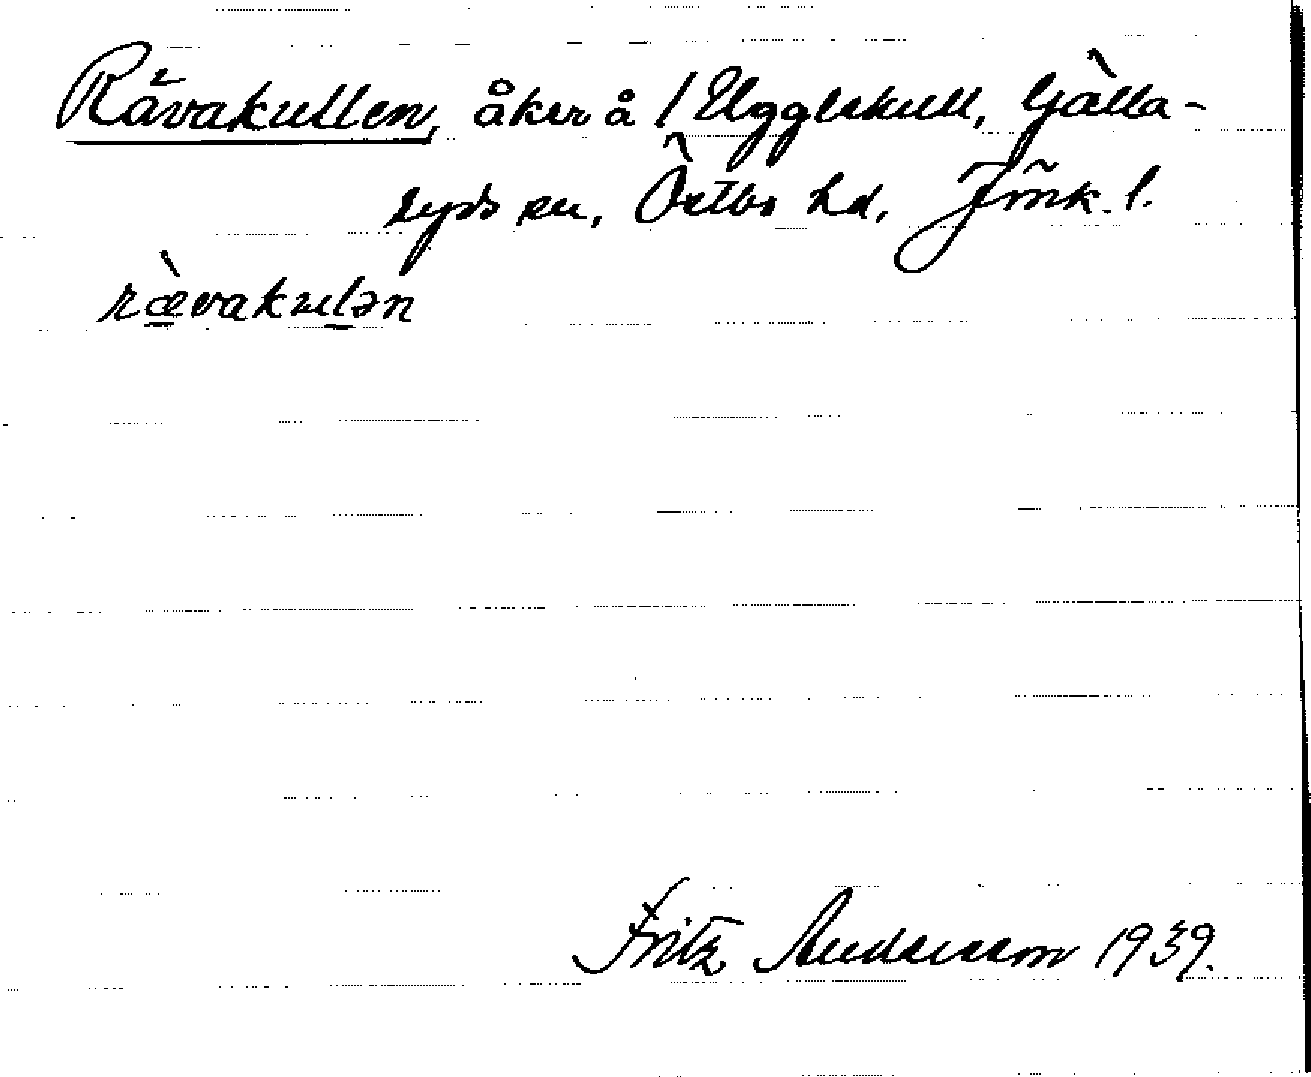 Rävakullen, åker å 1 Ugglekull, Gälla-
ryds sn, Östbo hd, Jönk. l.
rævakulən
Fritz Andersson 1939.